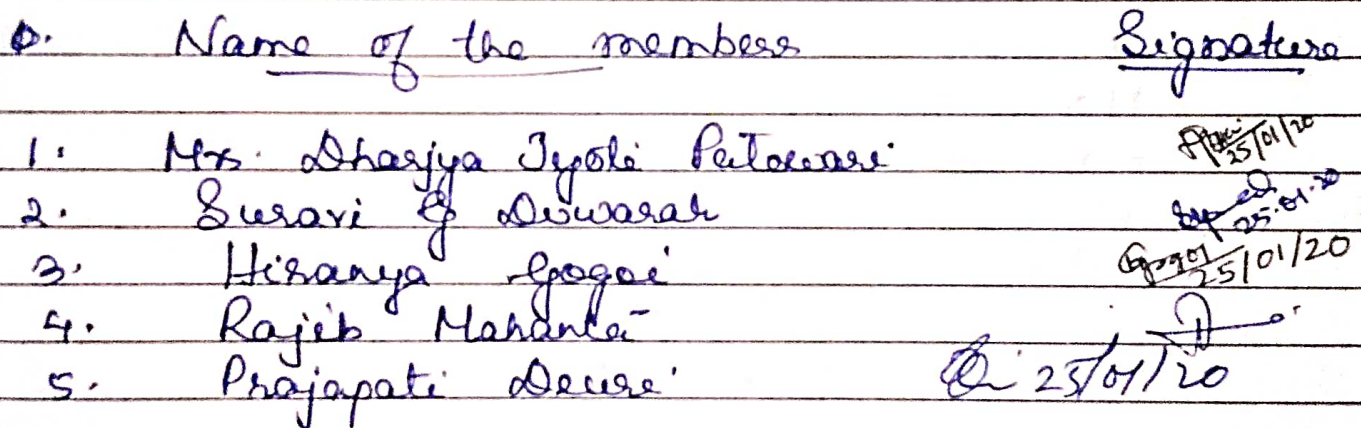 Name of the members Signature
1. Mr. Dharjya Jyoti Patowari 25/01/20
2. Suravi G Duwarah 25.01.20
3. Hiranya Gogoi Gogoi 25/01/20
4. Rajib Mahanta
5. Prajapati Deuri 25/01/20